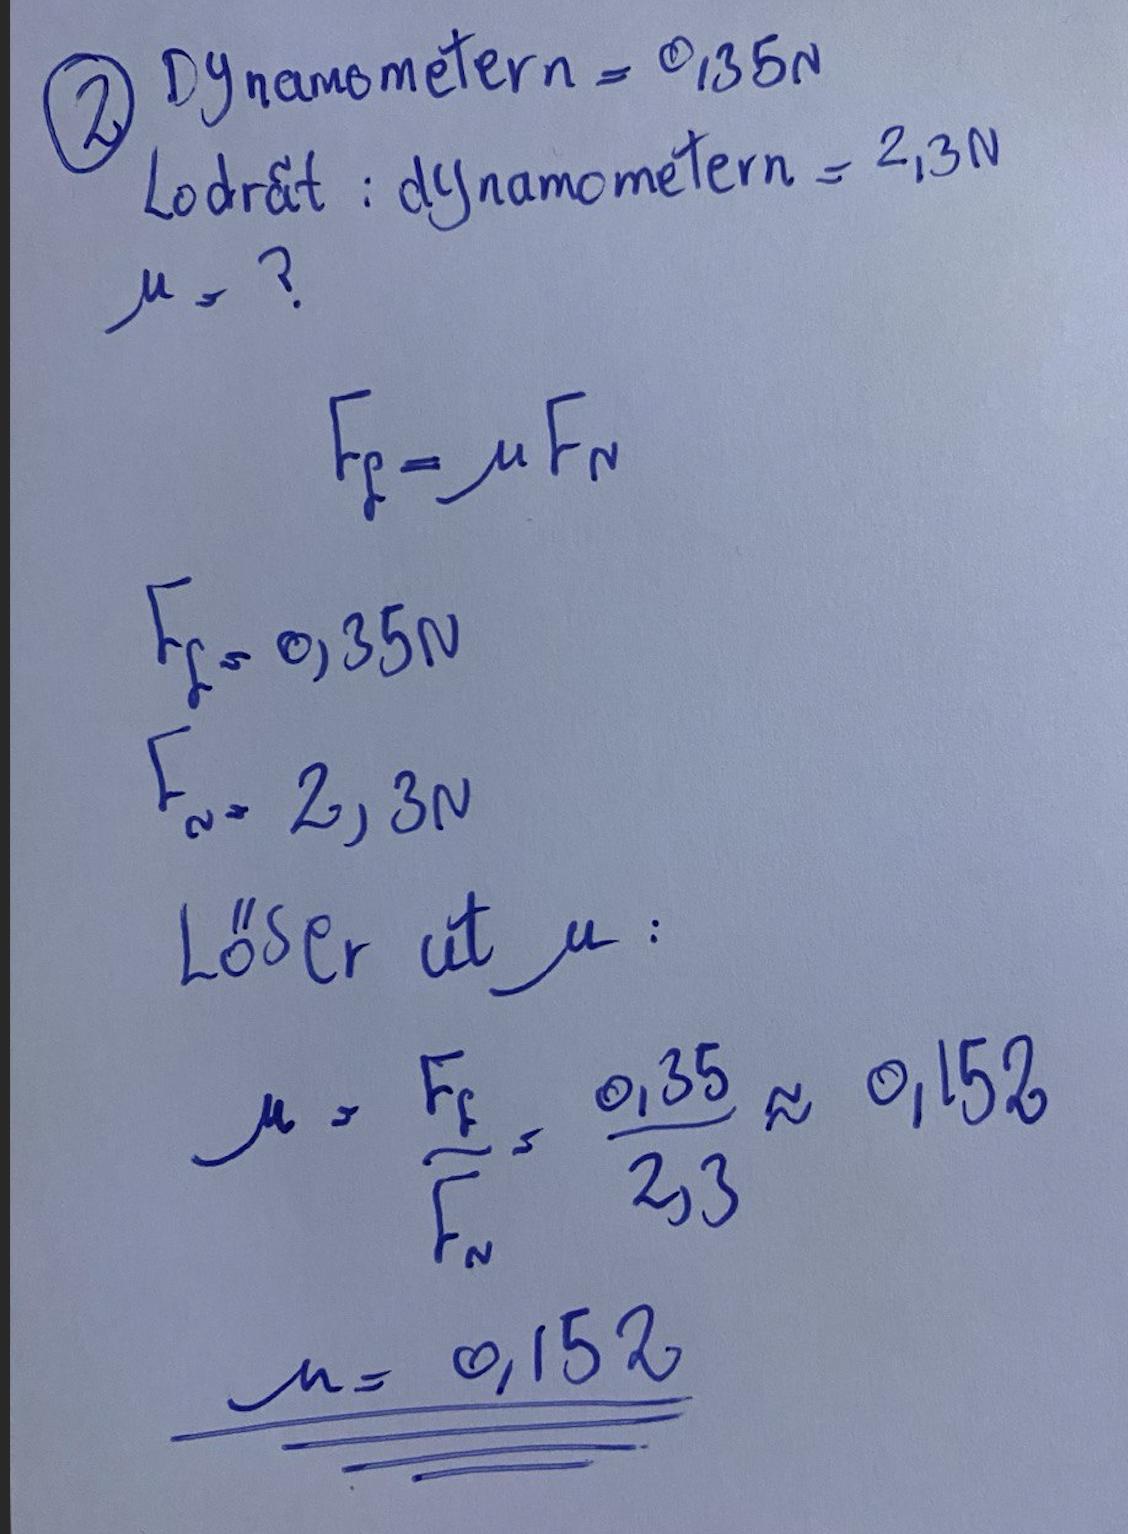 ② Dynamometern = 0,35N
Lodrät : dynamometern = 2,3N
μ = ?
F_f = μ F_N
F_f = 0,35N
F_N = 2,3N
Löser ut μ :
μ = F_f / F_N = 0,35 / 2,3 ≈ 0,152
μ = 0,152